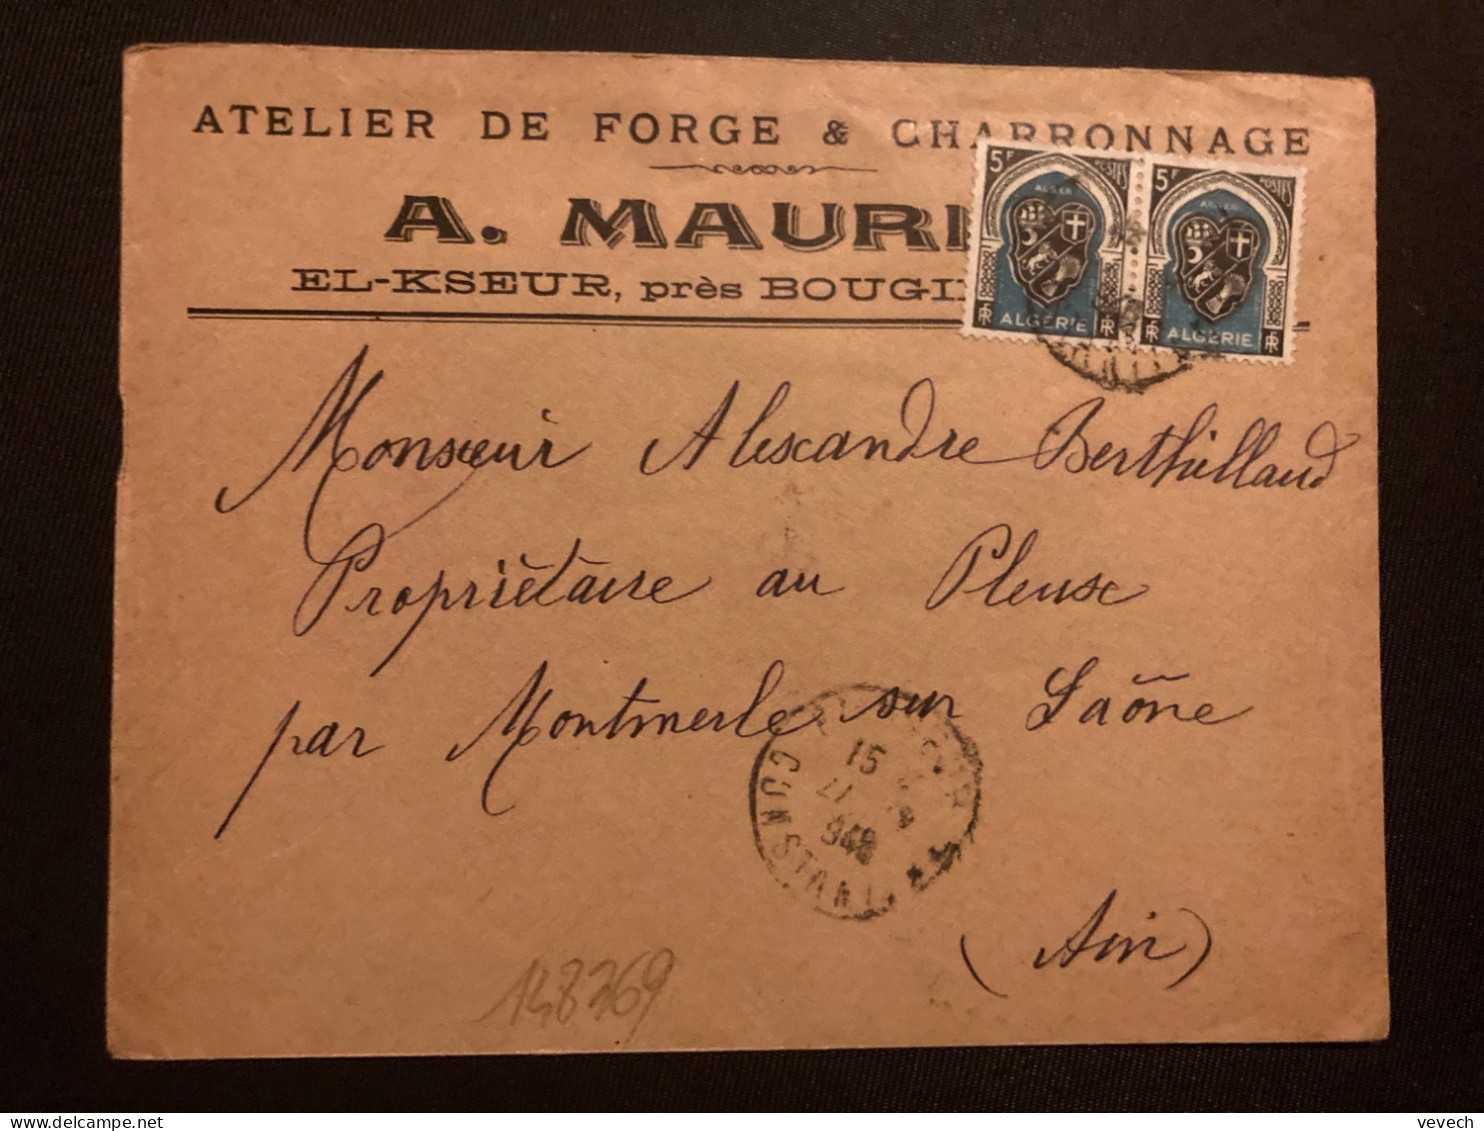 ATELIER DE FORGE & CHARRONNAGE
A. MAURI
EL-KSEUR, près BOUGI
5F POSTES
ALGER
RF ALGERIE RF
5F POSTES
ALGER
RF ALGERIE RF
Monsieur Alexandre Berthilland
Propriétaire au Pleux
par Montmerle sur Saône
(Ain)
15
948
CONSTANT
148269
vevech